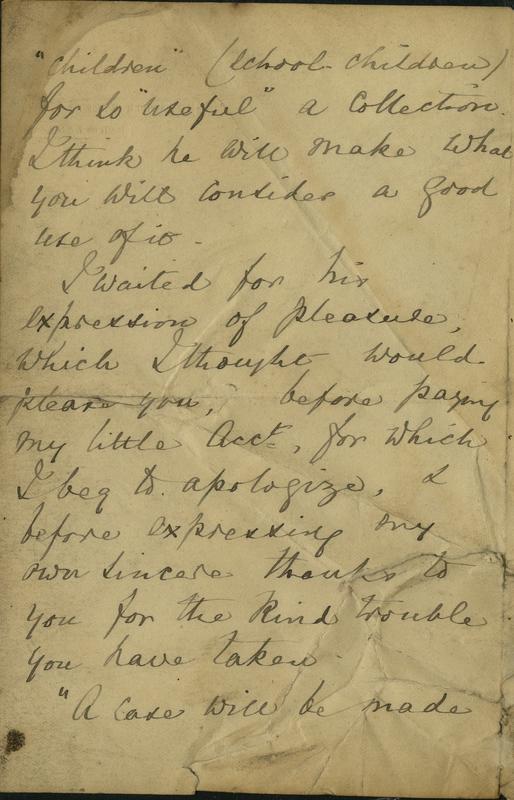 "children" (school-children)
for so "useful" a collection.
I think he will make what
you will consider a good
use of it.
I waited for his
expression of pleasure,
which I thought would
please you, before paying
my little Acct, for which
I beg to apologize, &
before expressing my
own sincere thanks to
you for the kind trouble
you have taken.
"A case will be made